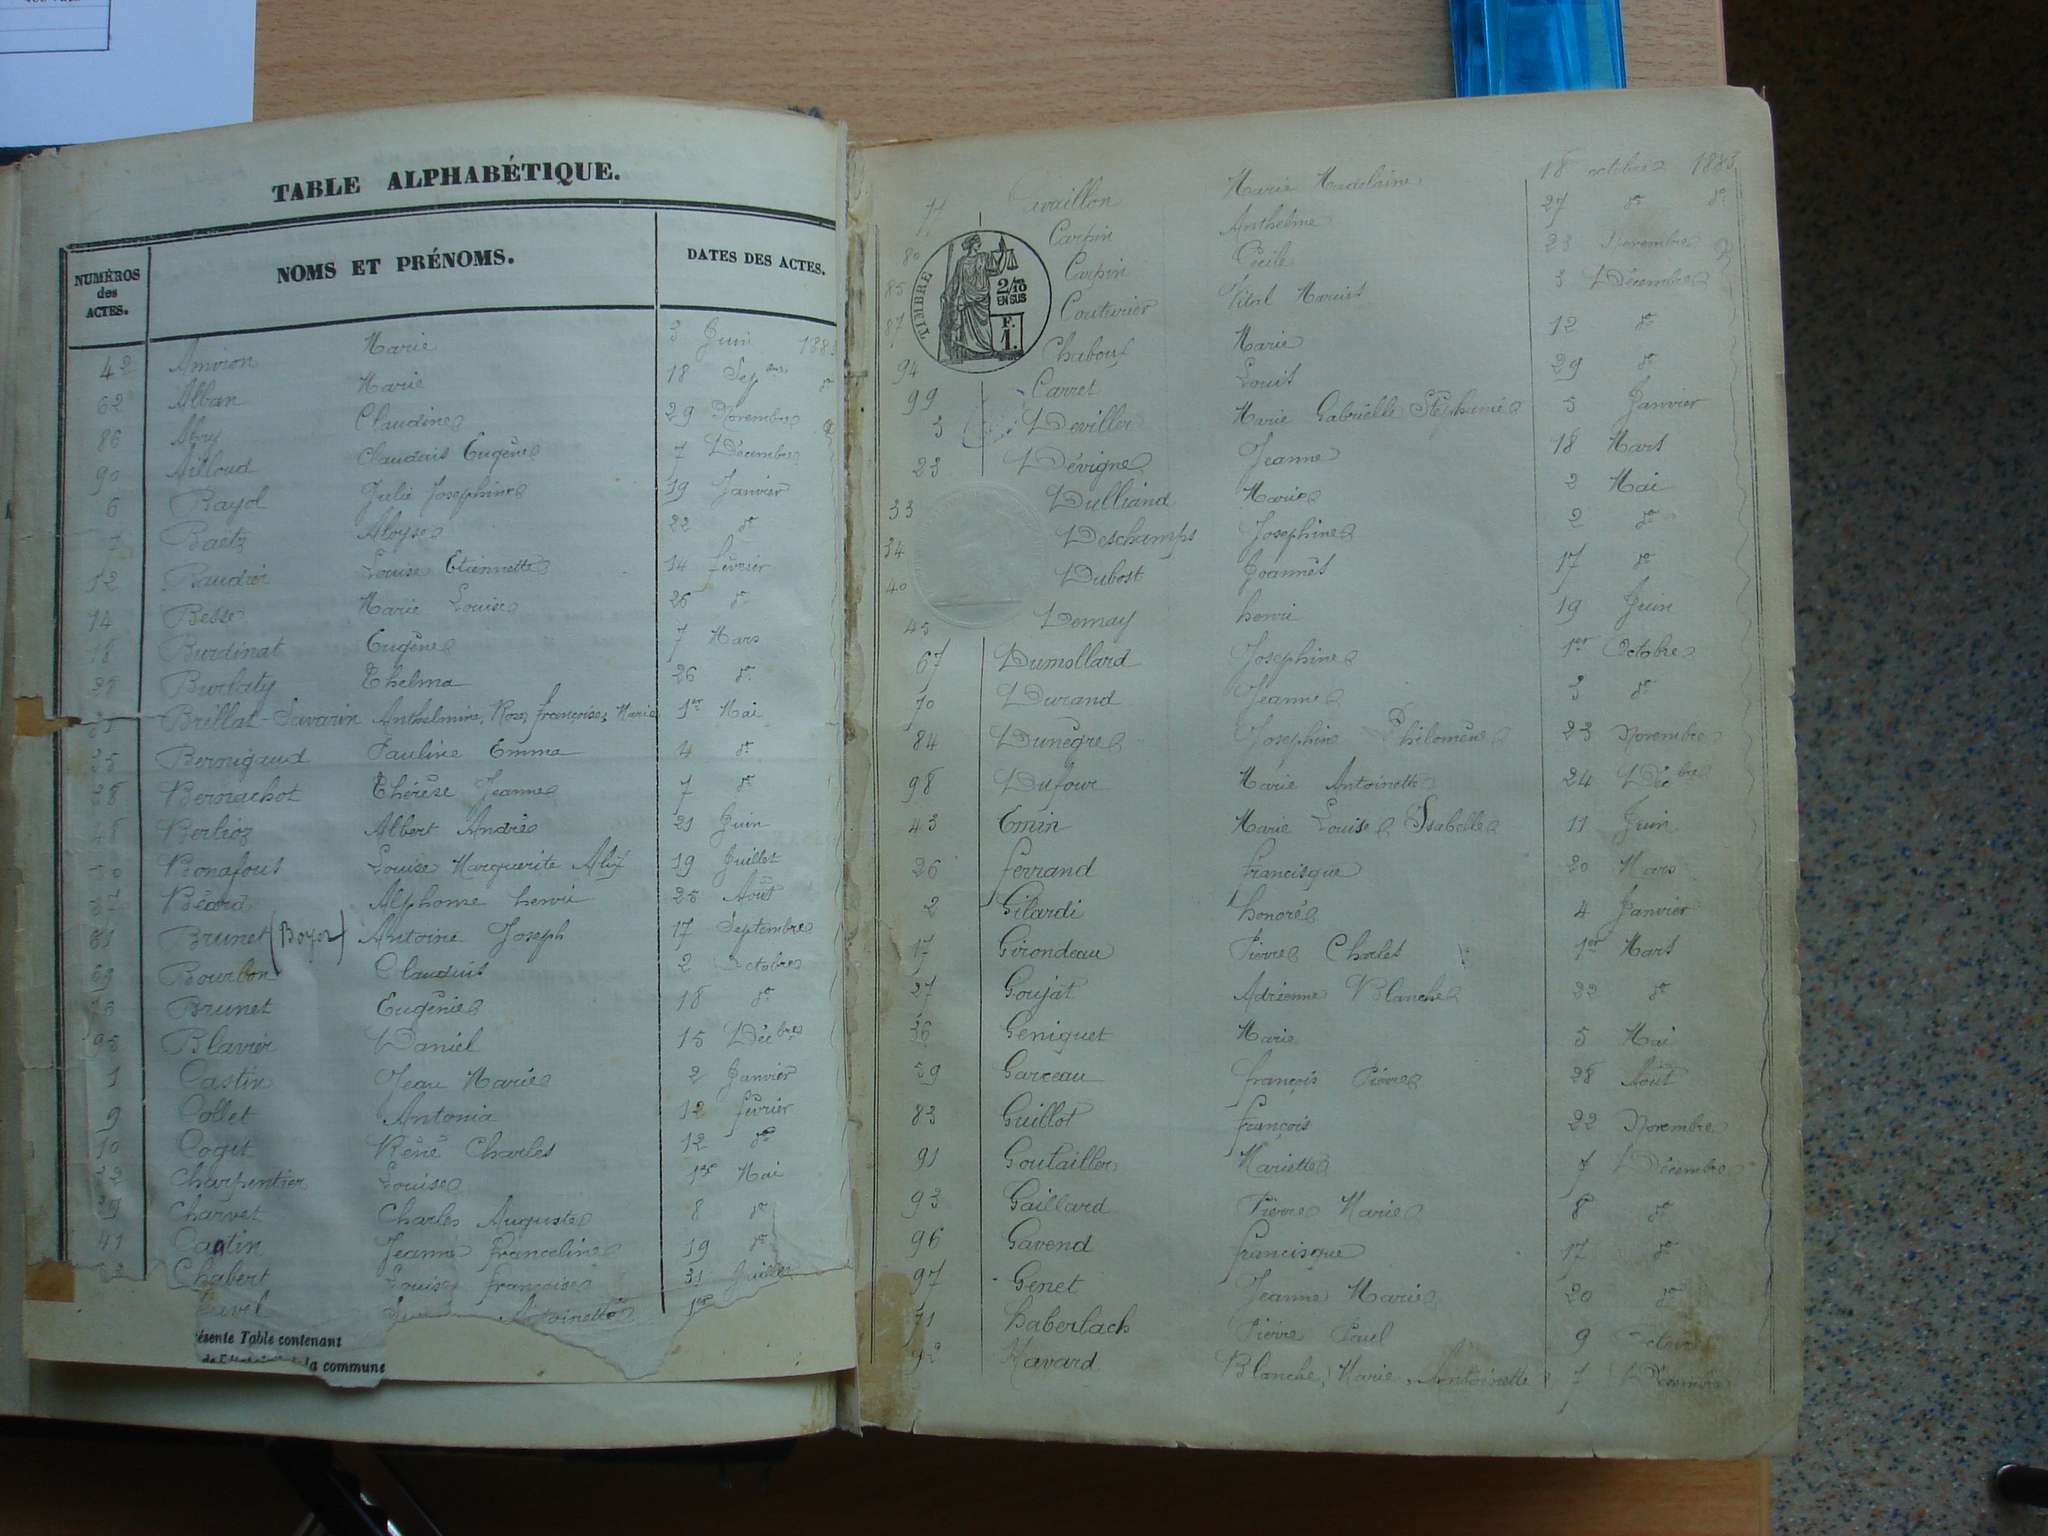 TABLE ALPHABÉTIQUE.
NUMÉROS des ACTES. NOMS ET PRÉNOMS. DATES DES ACTES.
42 Amiron Marie 3 Juin 1883
62 Alban Marie 18 Sep
86 Abry Claudine 29 Novembre
90 Ailloud Claudius Eugène 7 Décembre
6 Bayol Julie Josephine 19 Janvier
7 Baetz Aloyse 22 do
12 Baudier Louise Etiennette 14 février
14 Besse Marie Louise 26 do
18 Burdinat Eugène 7 Mars
28 Burlaty Thelma 26 do
Brillat-Savarin Anthelmine, Rose, françoise, Marie 1er Mai
35 Bernigaud Pauline Emma 4 do
38 Bernachot Thérèse Jeanne 7 do
48 Berlioz Albert André 21 Juin
Bonafous Louise Marguerite Alix 19 Juillet
57 Béard Alphonse henri 25 Août
61 Brunet (Boyer) Antoine Joseph 17 Septembre
69 Bourbon Claudius 2 Octobre
Brunet Eugénie 18 do
95 Blavier Daniel 15 Décbre
1 Castin Jean Marie 2 Janvier
9 Collet Antonia 12 février
10 Coget Réné Charles 12 do
32 Charpentier Louise 1er Mai
39 Charvet Charles Auguste 8 do
41 Castin Jeanne franceline 19 do
Chabert Louise françoise 31 Juillet
Antoinette 1er
ésente Table contenant
la commune
77 vaillon Marie Madelaine 18 octobre 1883
80 Carpin Anthelme 27 do do
85 Carpin Cécile 23 Novembre
87 Couturier Vital Marius 3 Décembre
94 Chaboux Marie 12 do
99 Carret Louis 29 do
TIMBRE 2/10 EN SUS F. 1.
3 Deviller Marie Gabrielle Stéphanie 5 Janvier
23 Dévigne Jeanne 18 Mars
33 Dulliand Marie 2 Mai
34 Deschamps Josephine 2 do
40 Dubost Joannès 17 do
45 Demay henri 19 Juin
67 Dumollard Josephine 1er Octobre
70 Durand Jeanne 3 do
84 Dunègre Josephine Philomène 23 Novembre
98 Dufour Marie Antoinette 24 Décbre
43 Emin Marie Louise Isabelle 11 Juin
26 ferrand francisque 20 Mars
2 Gilardi honoré 4 Janvier
17 Girondeau Pierre Charles 1er Mars
27 Goujat Adrienne Blanche 22 do
36 Geniquet Marie 5 Mai
59 Garceau françois Pierre 28 Août
83 Guillot françois 22 Novembre
91 Goutailler Mariette 7 Décembre
93 Gaillard Pierre Marie 8 do
96 Gavend francisque 17 do
97 Genet Jeanne Marie 20 do
71 haberlach Pierre Paul 9 octobre
92 Havard Blanche, Marie, Antoinette 7 Décembre